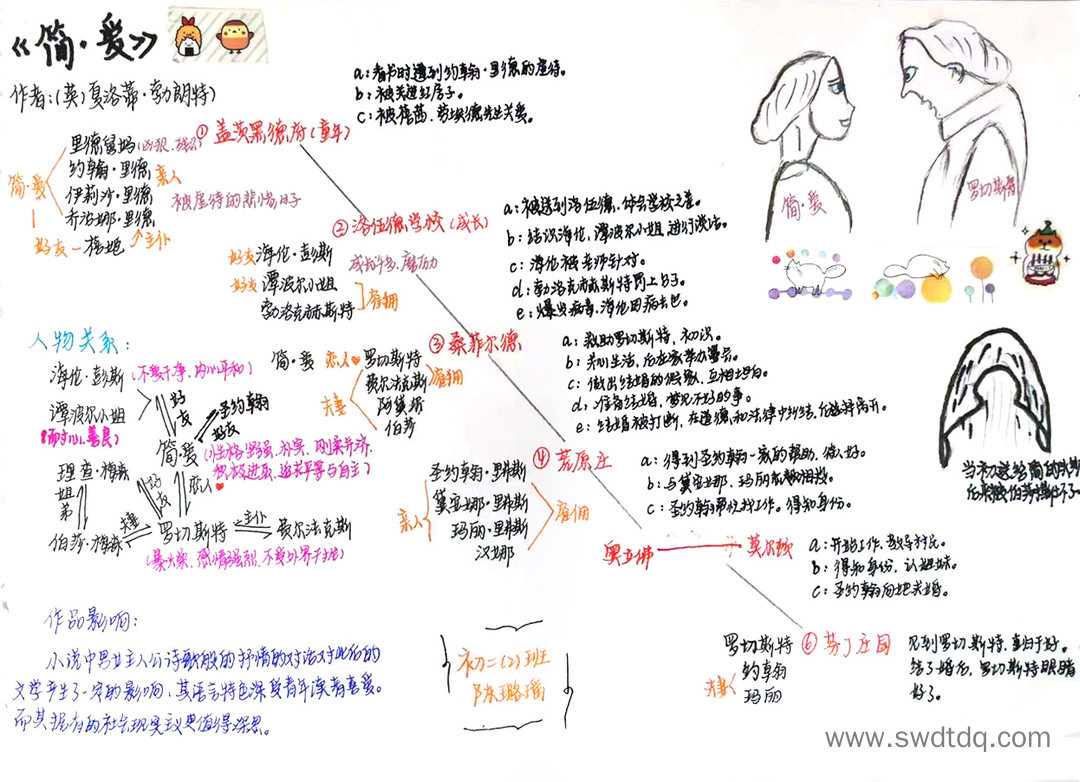 《简·爱》
作者:(英)夏洛蒂·勃朗特)
①盖茨黑德府(童年)
a:看书时遭到约翰·里德的虐待。
b:被关进红房子。
c:被蓓茜、劳埃德先生关爱。
简·爱
里德舅妈
约翰·里德
伊莉莎·里德
乔治娜·里德
亲人
好友—蓓茜
主仆
被虐待的悲惨日子
②洛伍德学校(成长)
好友 海伦·彭斯
好友 谭波尔小姐
勃洛克赫斯特
雇佣
a:被送到洛伍德,体会学校之差。
b:结识海伦,谭波尔小姐,进行谈话。
c:海伦被老师针对。
d:勃洛克赫斯特
e:爆发病毒,海伦因病去世。
③桑菲尔德
简·爱 恋人 罗切斯特
费尔法克斯
阿黛勒
伯莎
夫妻
雇佣
a:救助罗切斯特,初识。
b:共同生活,后在家举办宴会。
c:做出结婚的假象,互相坦白。
d:准备结婚,梦见不好的事。
e:结婚被打断,在道德和法律中纠结,后选择离开。
④荒原庄
圣约翰·里弗斯
黛安娜·里弗斯
玛丽·里弗斯
汉娜
亲人
雇佣
a:得到圣约翰一家的帮助,
b:与黛安娜、玛丽
c:圣约翰帮忙找工作。得知身份。
奥立佛
莫尔顿
a:开始工作、教导村民。
b:得知身份,认姐妹。
c:圣约翰向她求婚。
⑥芬丁庄园
罗切斯特
约翰
玛丽
夫妻
见到罗切斯特,重归于好。
结了婚后,罗切斯特眼睛
好了。
人物关系:
海伦·彭斯
(不受干净,内心平和)
谭波尔小姐
(耐心、善良)
好友
圣约翰
好友
简爱
(性格坚强、朴实、刚柔并济、
积极进取、追求平等与自主)
理查·梅森
姐弟
好友
恋人
伯莎·梅森
夫妻
罗切斯特
主仆
费尔法克斯
(暴脾,感情强烈,不受外界干扰)
作品影响:
小说中男女主人公诗歌般的抒情的对话对此后的
文学产生了一定的影响,其语言特色深受青年读者喜爱。
而其现有的社会现实主义更值得深思。
初二(2)班
简·爱
罗切斯特
www.swdtdq.com